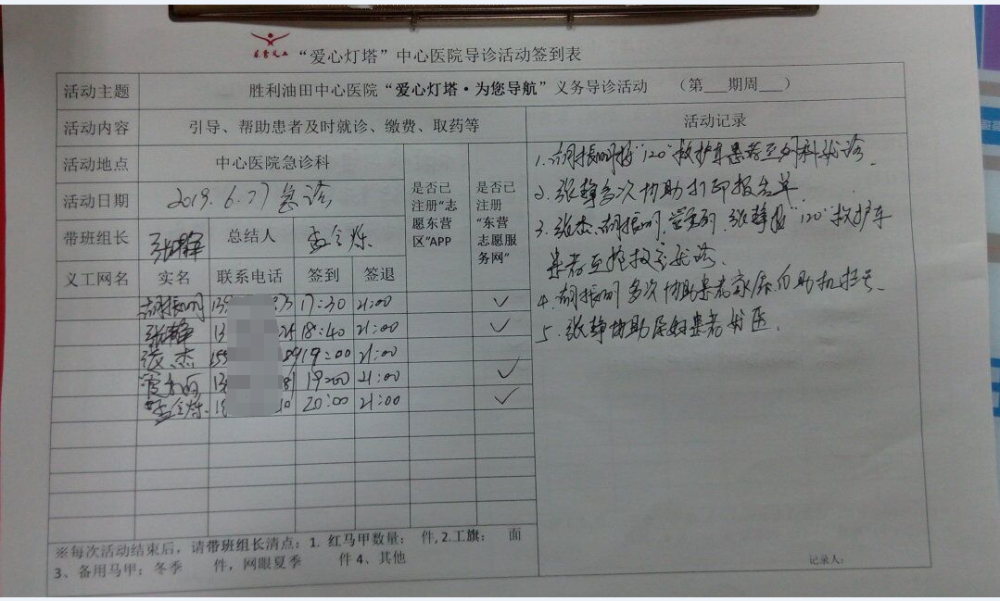 “爱心灯塔”中心医院导诊活动签到表
活动主题 胜利油田中心医院“爱心灯塔·为您导航”义务导诊活动 （第___期周___）
活动内容 引导、帮助患者及时就诊、缴费、取药等 活动记录
活动地点 中心医院急诊科
活动日期 2019.6.27急诊
是否已注册“志愿东营区”APP
是否已注册“东营志愿服务网”
带班组长 张静 总结人 孟令烁
义工网名 实名 联系电话 签到 签退
胡振明 17:30 21:00 ✓
张静 18:40 21:00 ✓
张杰 19:00 21:00
19:00 21:00 ✓
孟令烁 20:00 21:00 ✓
1.胡振明接“120”救护车患者至外科就诊.
2.张静多次协助打印报告单.
3.张杰.胡振明. 张静接“120”救护车
患者至抢救室就诊.
4.胡振明多次协助患者家属自助机挂号.
5.张静协助 患者 医.
※每次活动结束后，请带班组长清点：1. 红马甲数量： 件, 2.工旗： 面
3、备用马甲：冬季 件，网眼夏季 件 4、其他
记录人：